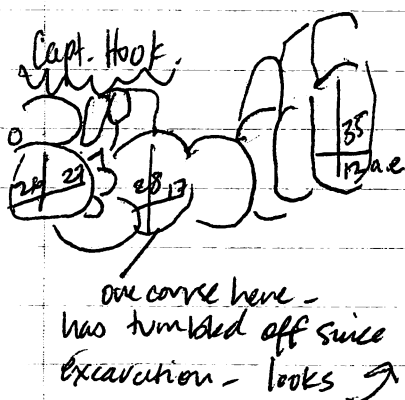 Capt. Hook.
35
12 a.e
24 27
28 17
one course here -
has tumbled off since
excavation - looks